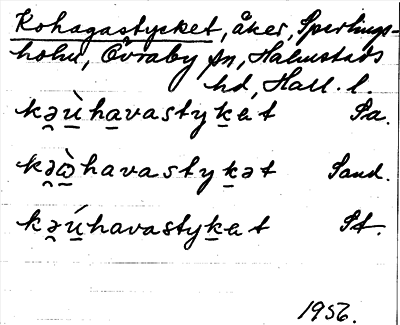 Kohagastycket, åker, Sperlings-
holm, Övraby sn, Halmstads
hd, Hall. l.
kə̯ù̱havastyḵet Pa.
kə̯ὼ̱havastyḵət Sand.
kə̯ú̱havastyḵet St.
1956.